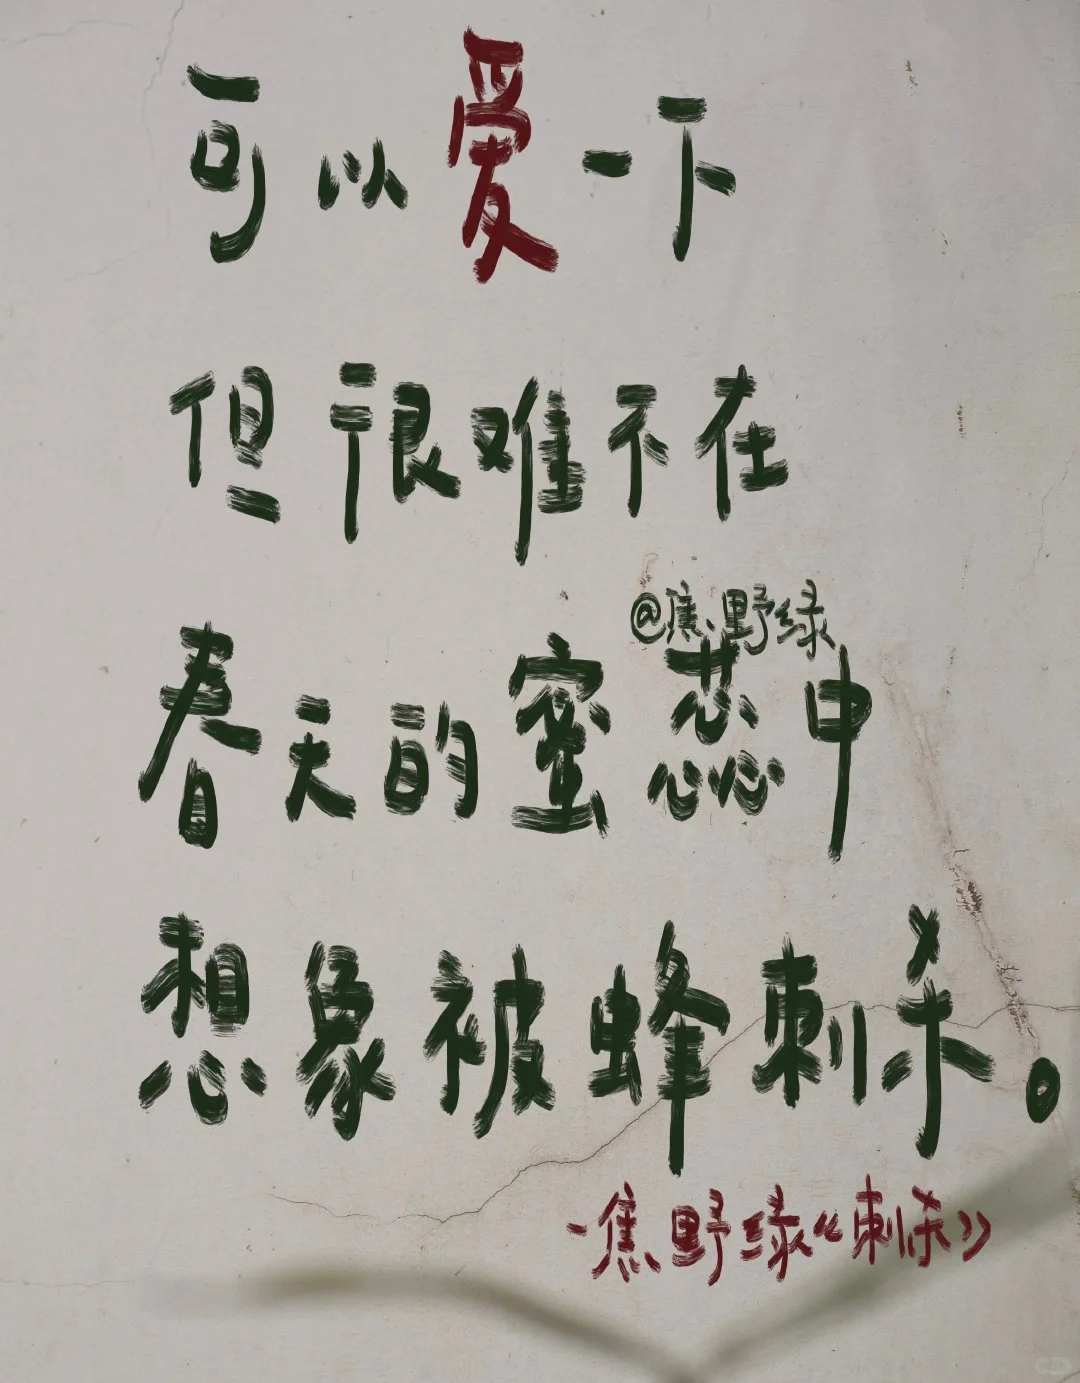 可以爱一下
但很难不在
@焦野绿
春天的蜜蕊中
想象被蜂刺杀。
-焦野绿《刺杀》